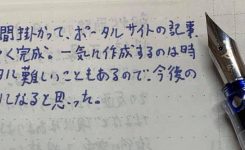 間掛かって、ポータルサイトの記事
く完成。一気に作成するのは時
難しいこともあるので、今後の
になると思った。